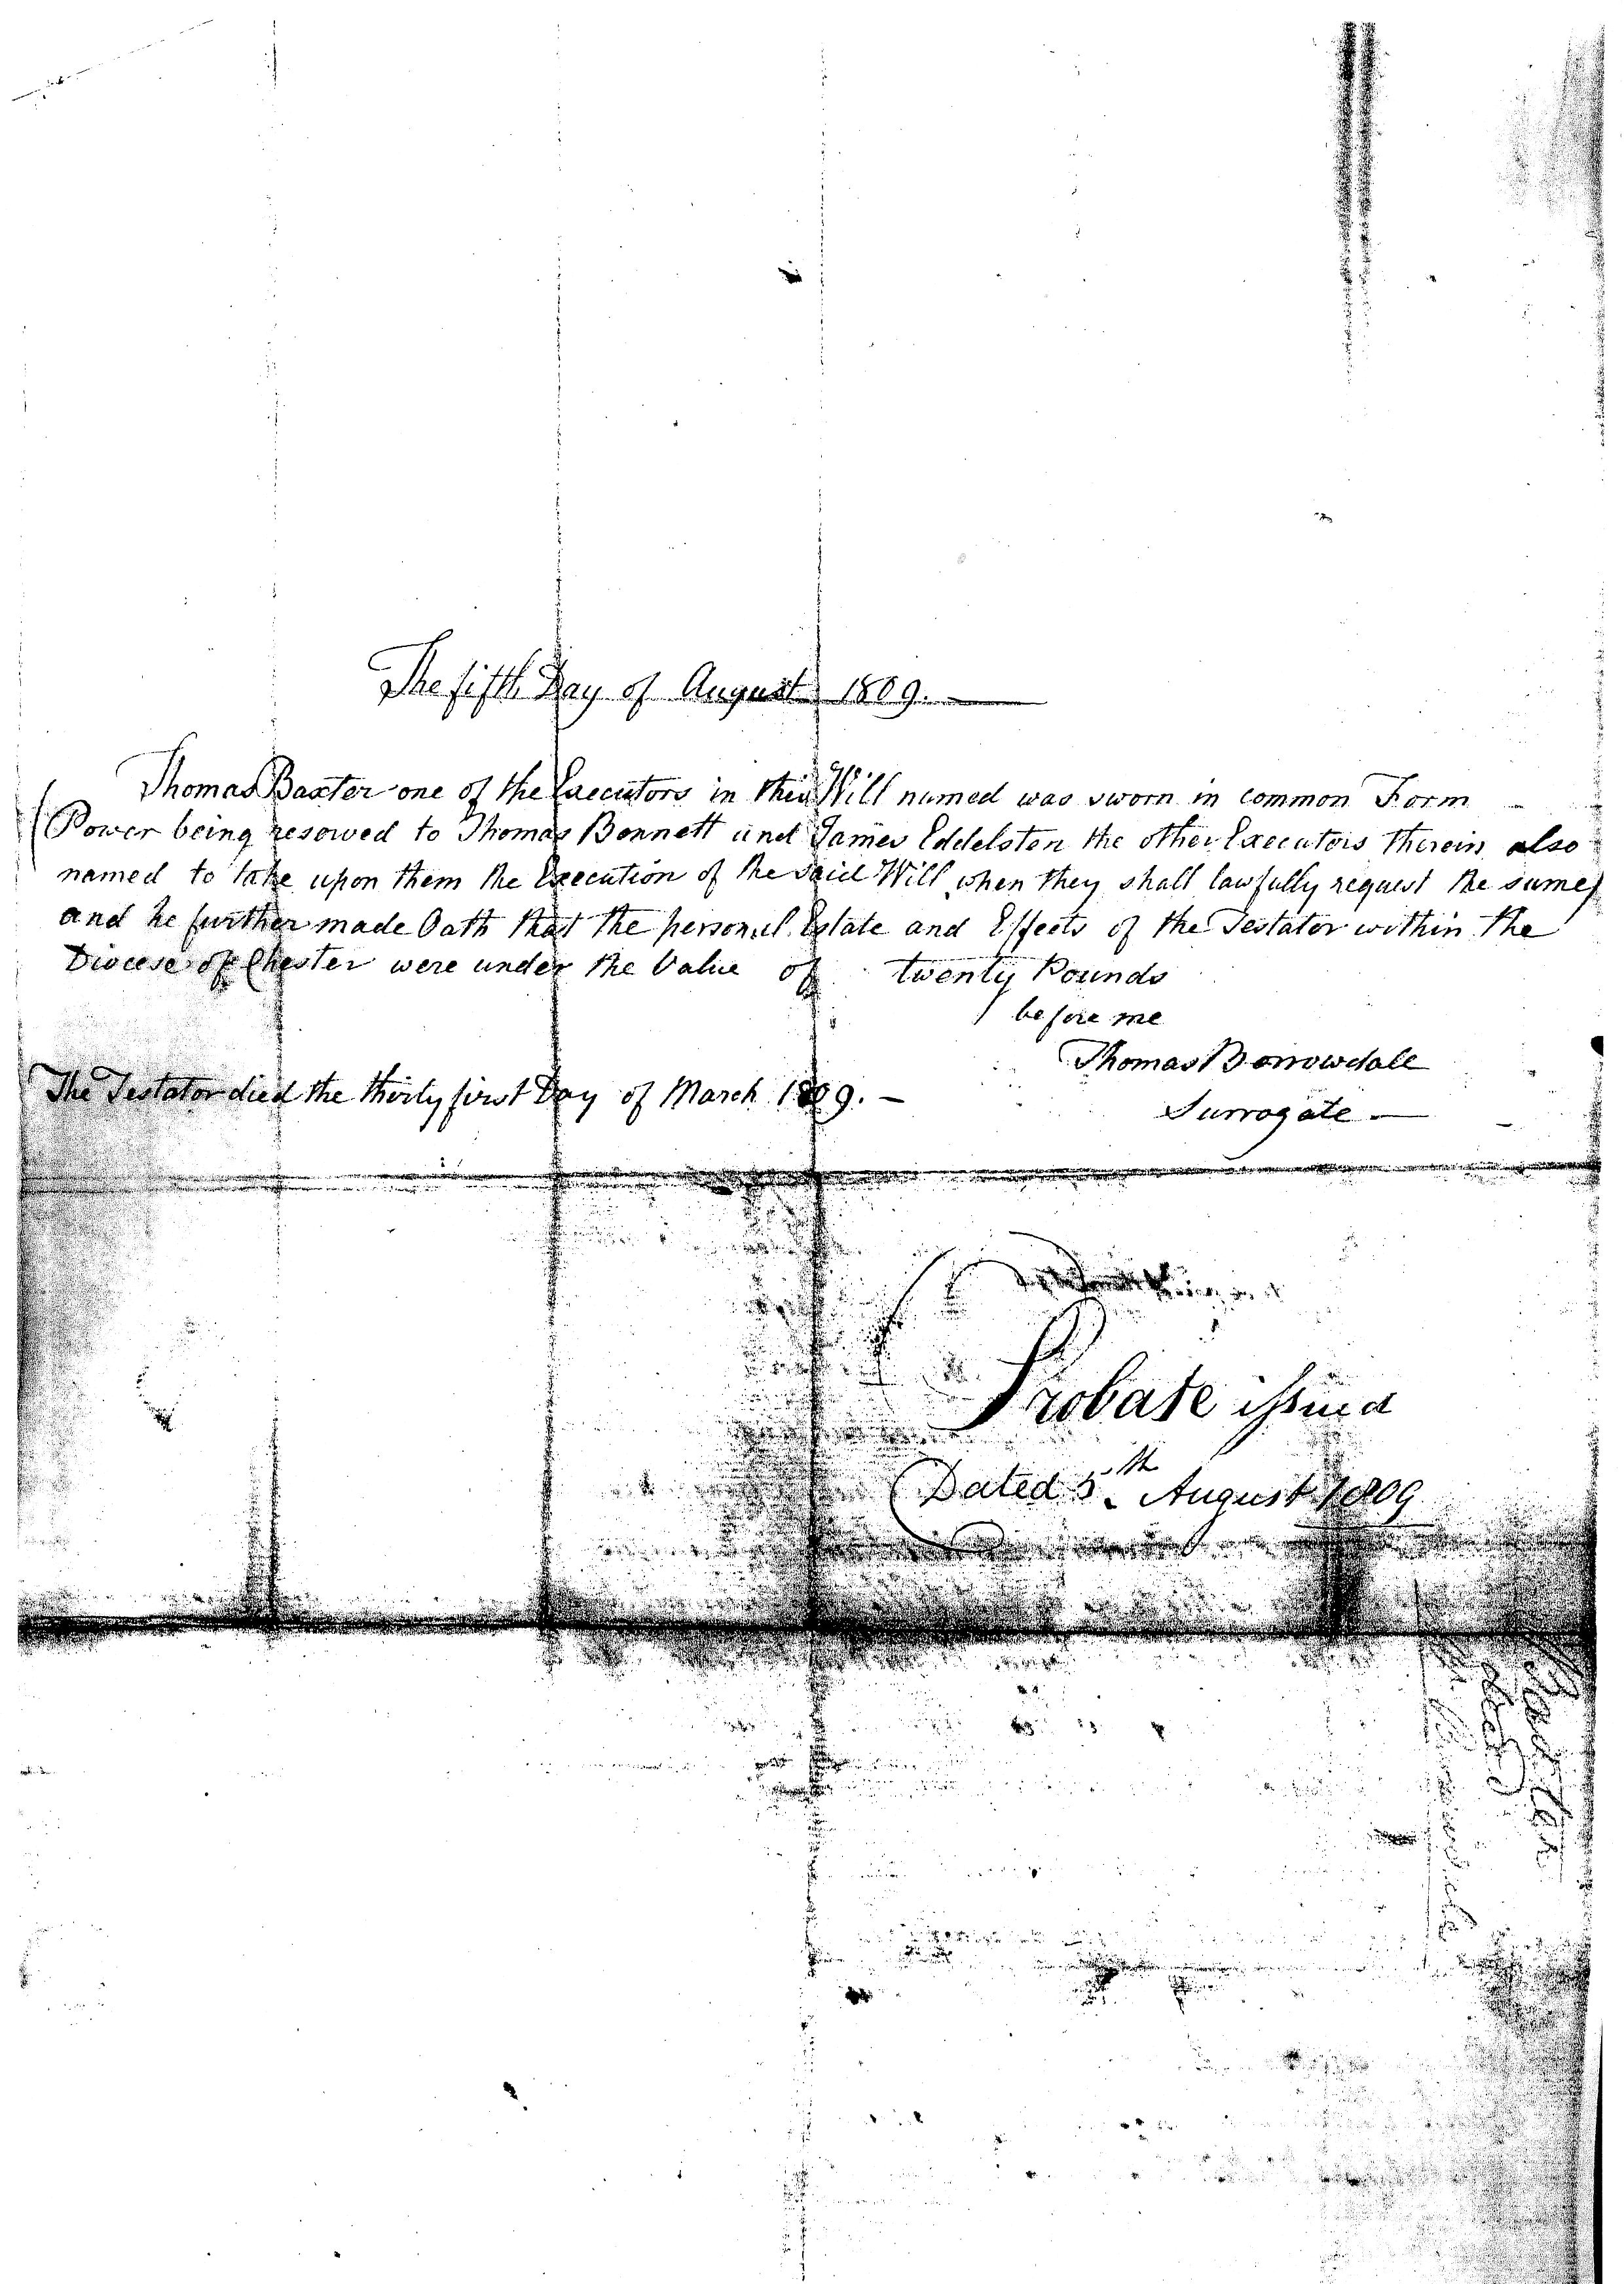 The fifth Day of August 1809.
Thomas Baxter one of the Executors in this Will named was sworn in common Form
(Power being resowed to Thomas Bennett and James Eddelston the other Executors therein also
named to take upon them the Execution of the said Will when they shall lawfully request the same)
and he further made Oath that the personal Estate and Effects of the Testator within the
Diocese of Chester were under the Value of twenty Pounds
before me
Thomas Borrowdale
Surrogate
The Testator died the thirty first Day of March 1809.
Probate issued
Dated 5th August 1809